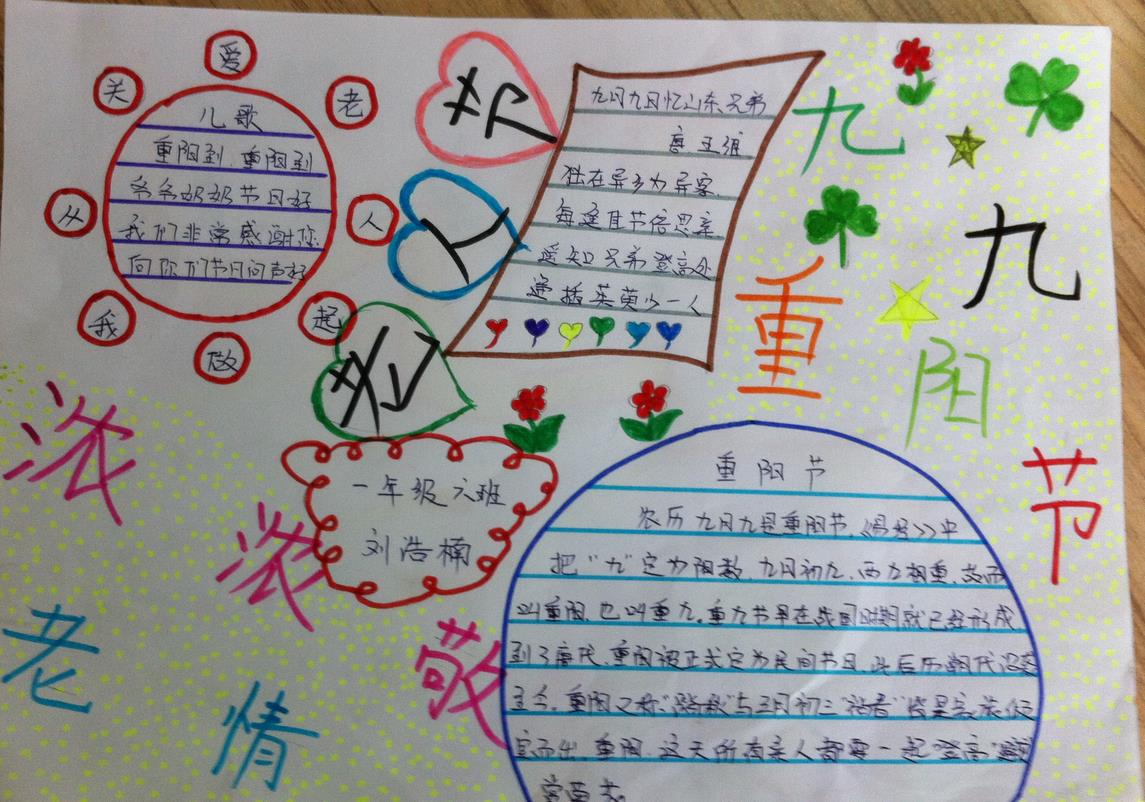 关
爱
老
人
从
我
做
起
儿歌
重阳到,重阳到
爷爷奶奶节日好
我们非常感谢你
向你们节日问声好
九月九日忆山东兄弟
唐 王维
独在异乡为异客,
每逢佳节倍思亲
遥知兄弟登高处
遍插茱萸少一人
九
九
重
阳
节
一年级六班
刘浩楠
浓
浓
敬
老
情
重阳节
农历九月九是重阳节,《易经》中
把“九”定为阳数,九月初九,两九相重,故而
叫重阳,也叫重九。重九节早在战国时期就已经形成
到了唐代,重阳被正式定为民间节日,此后历朝代沿袭
至今。重阳又称“踏秋”与三月初三“踏春”皆是家族倾
室而出,重阳,这天所有亲人都要一起“登高”